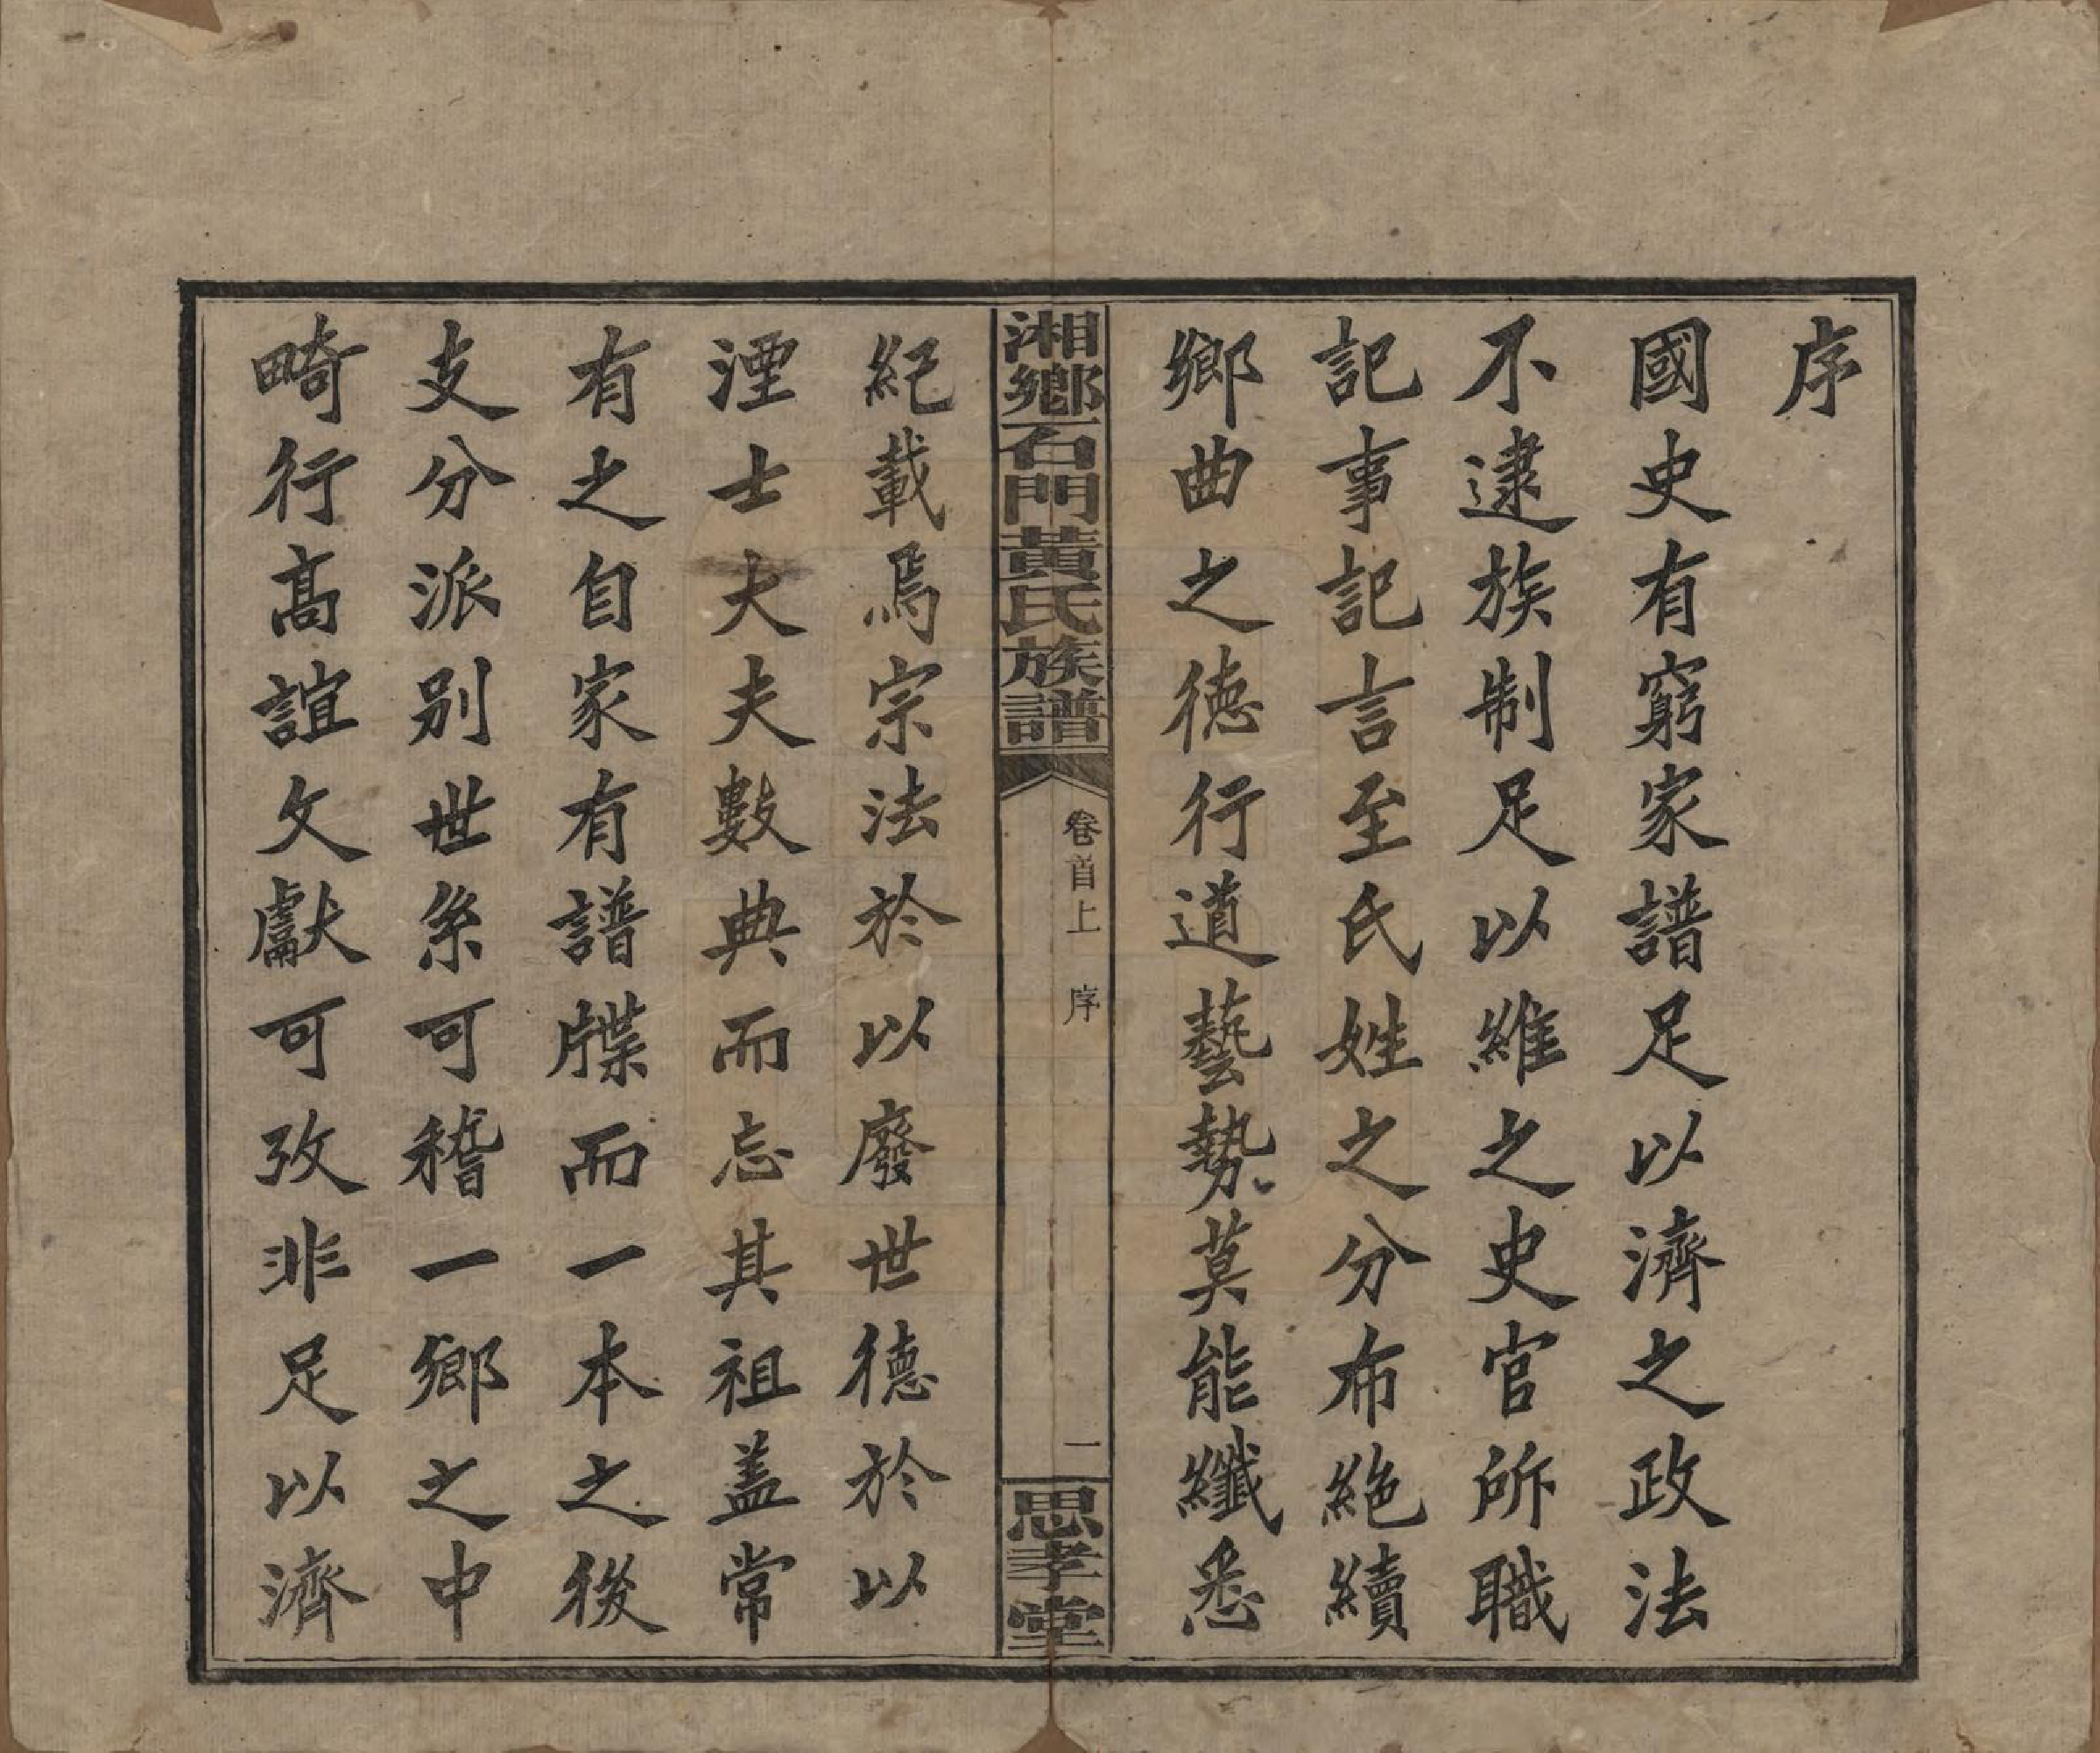 序
國史有窮家譜足以濟之政法
不逮族制足以維之史官所職
記事記言至氏姓之分布絶續
鄉曲之徳行道藝勢莫能纖悉
湘鄉石門黃氏族譜
卷首上 序
一
思孝堂
紀載焉宗法於以廢世徳於以
湮士大夫數典而忘其祖盖常
有之自家有譜牒而一本之後
支分派别世系可稽一鄉之中
畸行髙誼文獻可攷非足以濟